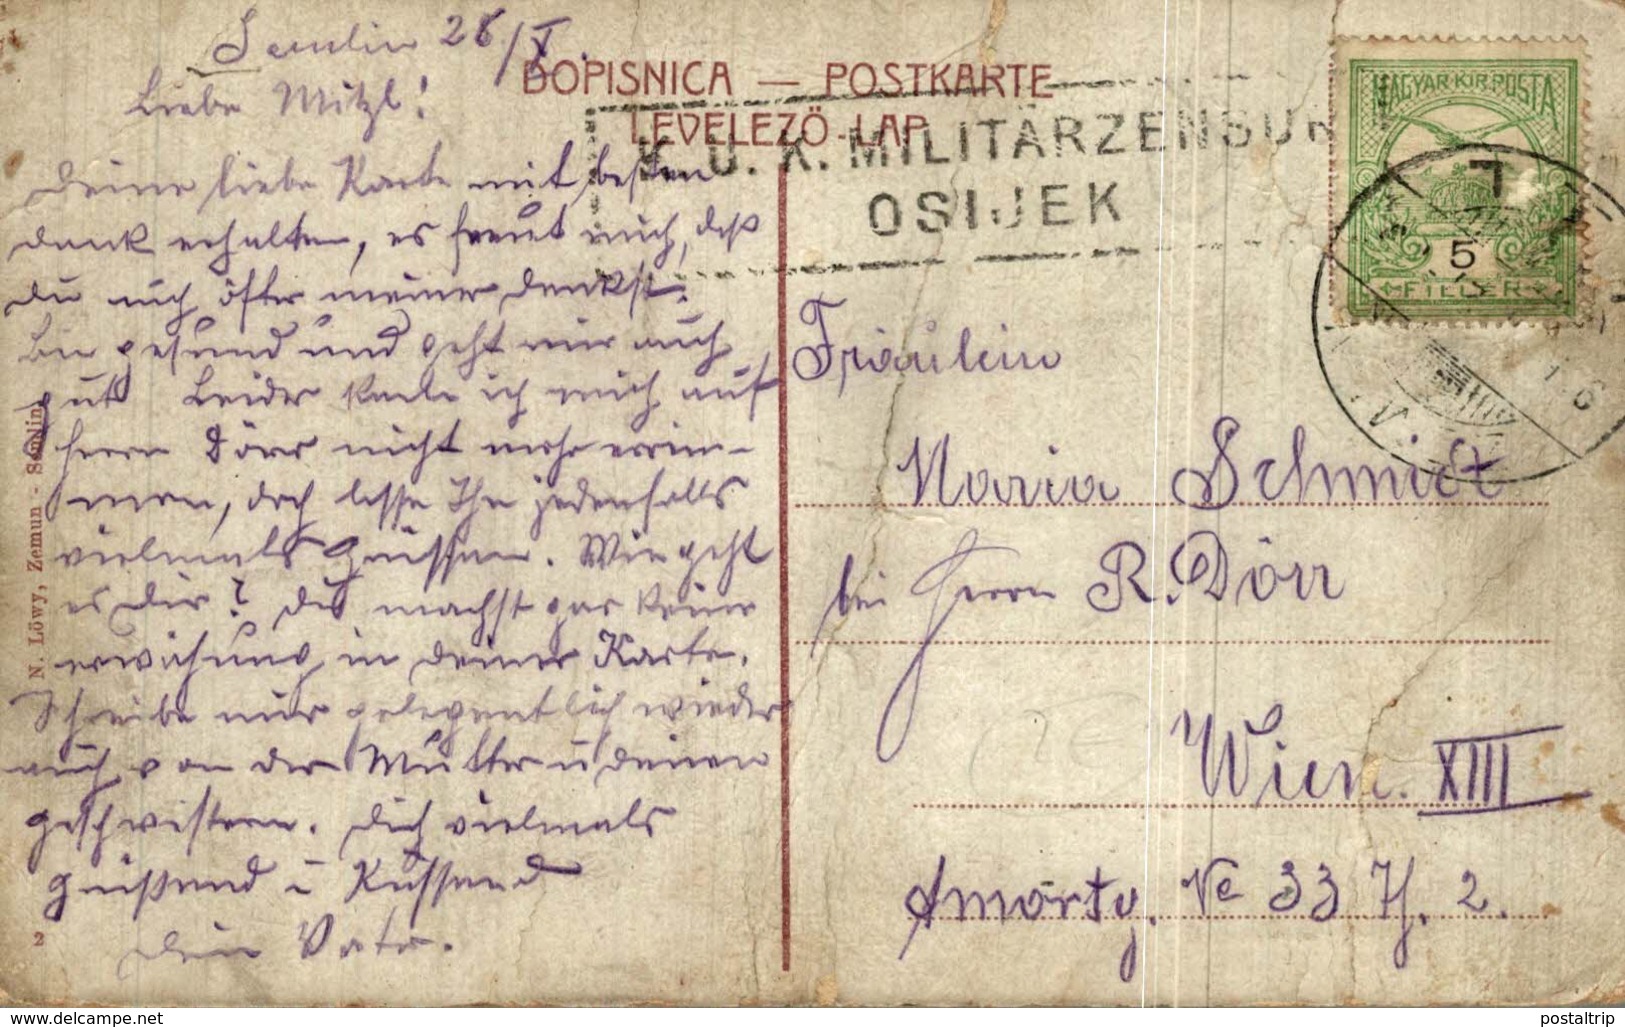 Semlin 28/V.
Liebe Mitzl!
Deine liebe Karte mit besten
Dank erhalten, es freut mich, daß
Du auch öfter meiner denkst.
Bin gesund und geht mir auch
gut Leider kann ich mich auf
Herrn Dörr nicht mehr erin-
nern, doch lasse Ihn jedenfalls
vielmals grüssen. Wie geht
es Dir? Du machst gar keine
erwähnung in deiner Karte.
Schreibe nur gelegentlich wieder
auch von der Mutter u deinen
geschwistern. Dich vielmals
grüßend u Küssend
Dein Vater.
N. Löwy, Zemun - Semlin
2
DOPISNICA — POSTKARTE
LEVELEZÖ-LAP
K. U. K. MILITÄRZENSUR
OSIJEK
MAGYAR KIR. POSTA
5
FILLER
Fräulein
Maria Schmidt
bei Herrn R. Dörr
Wien. XIII
Amortg. No 33 Th. 2.
www.delcampe.net
postaltrip